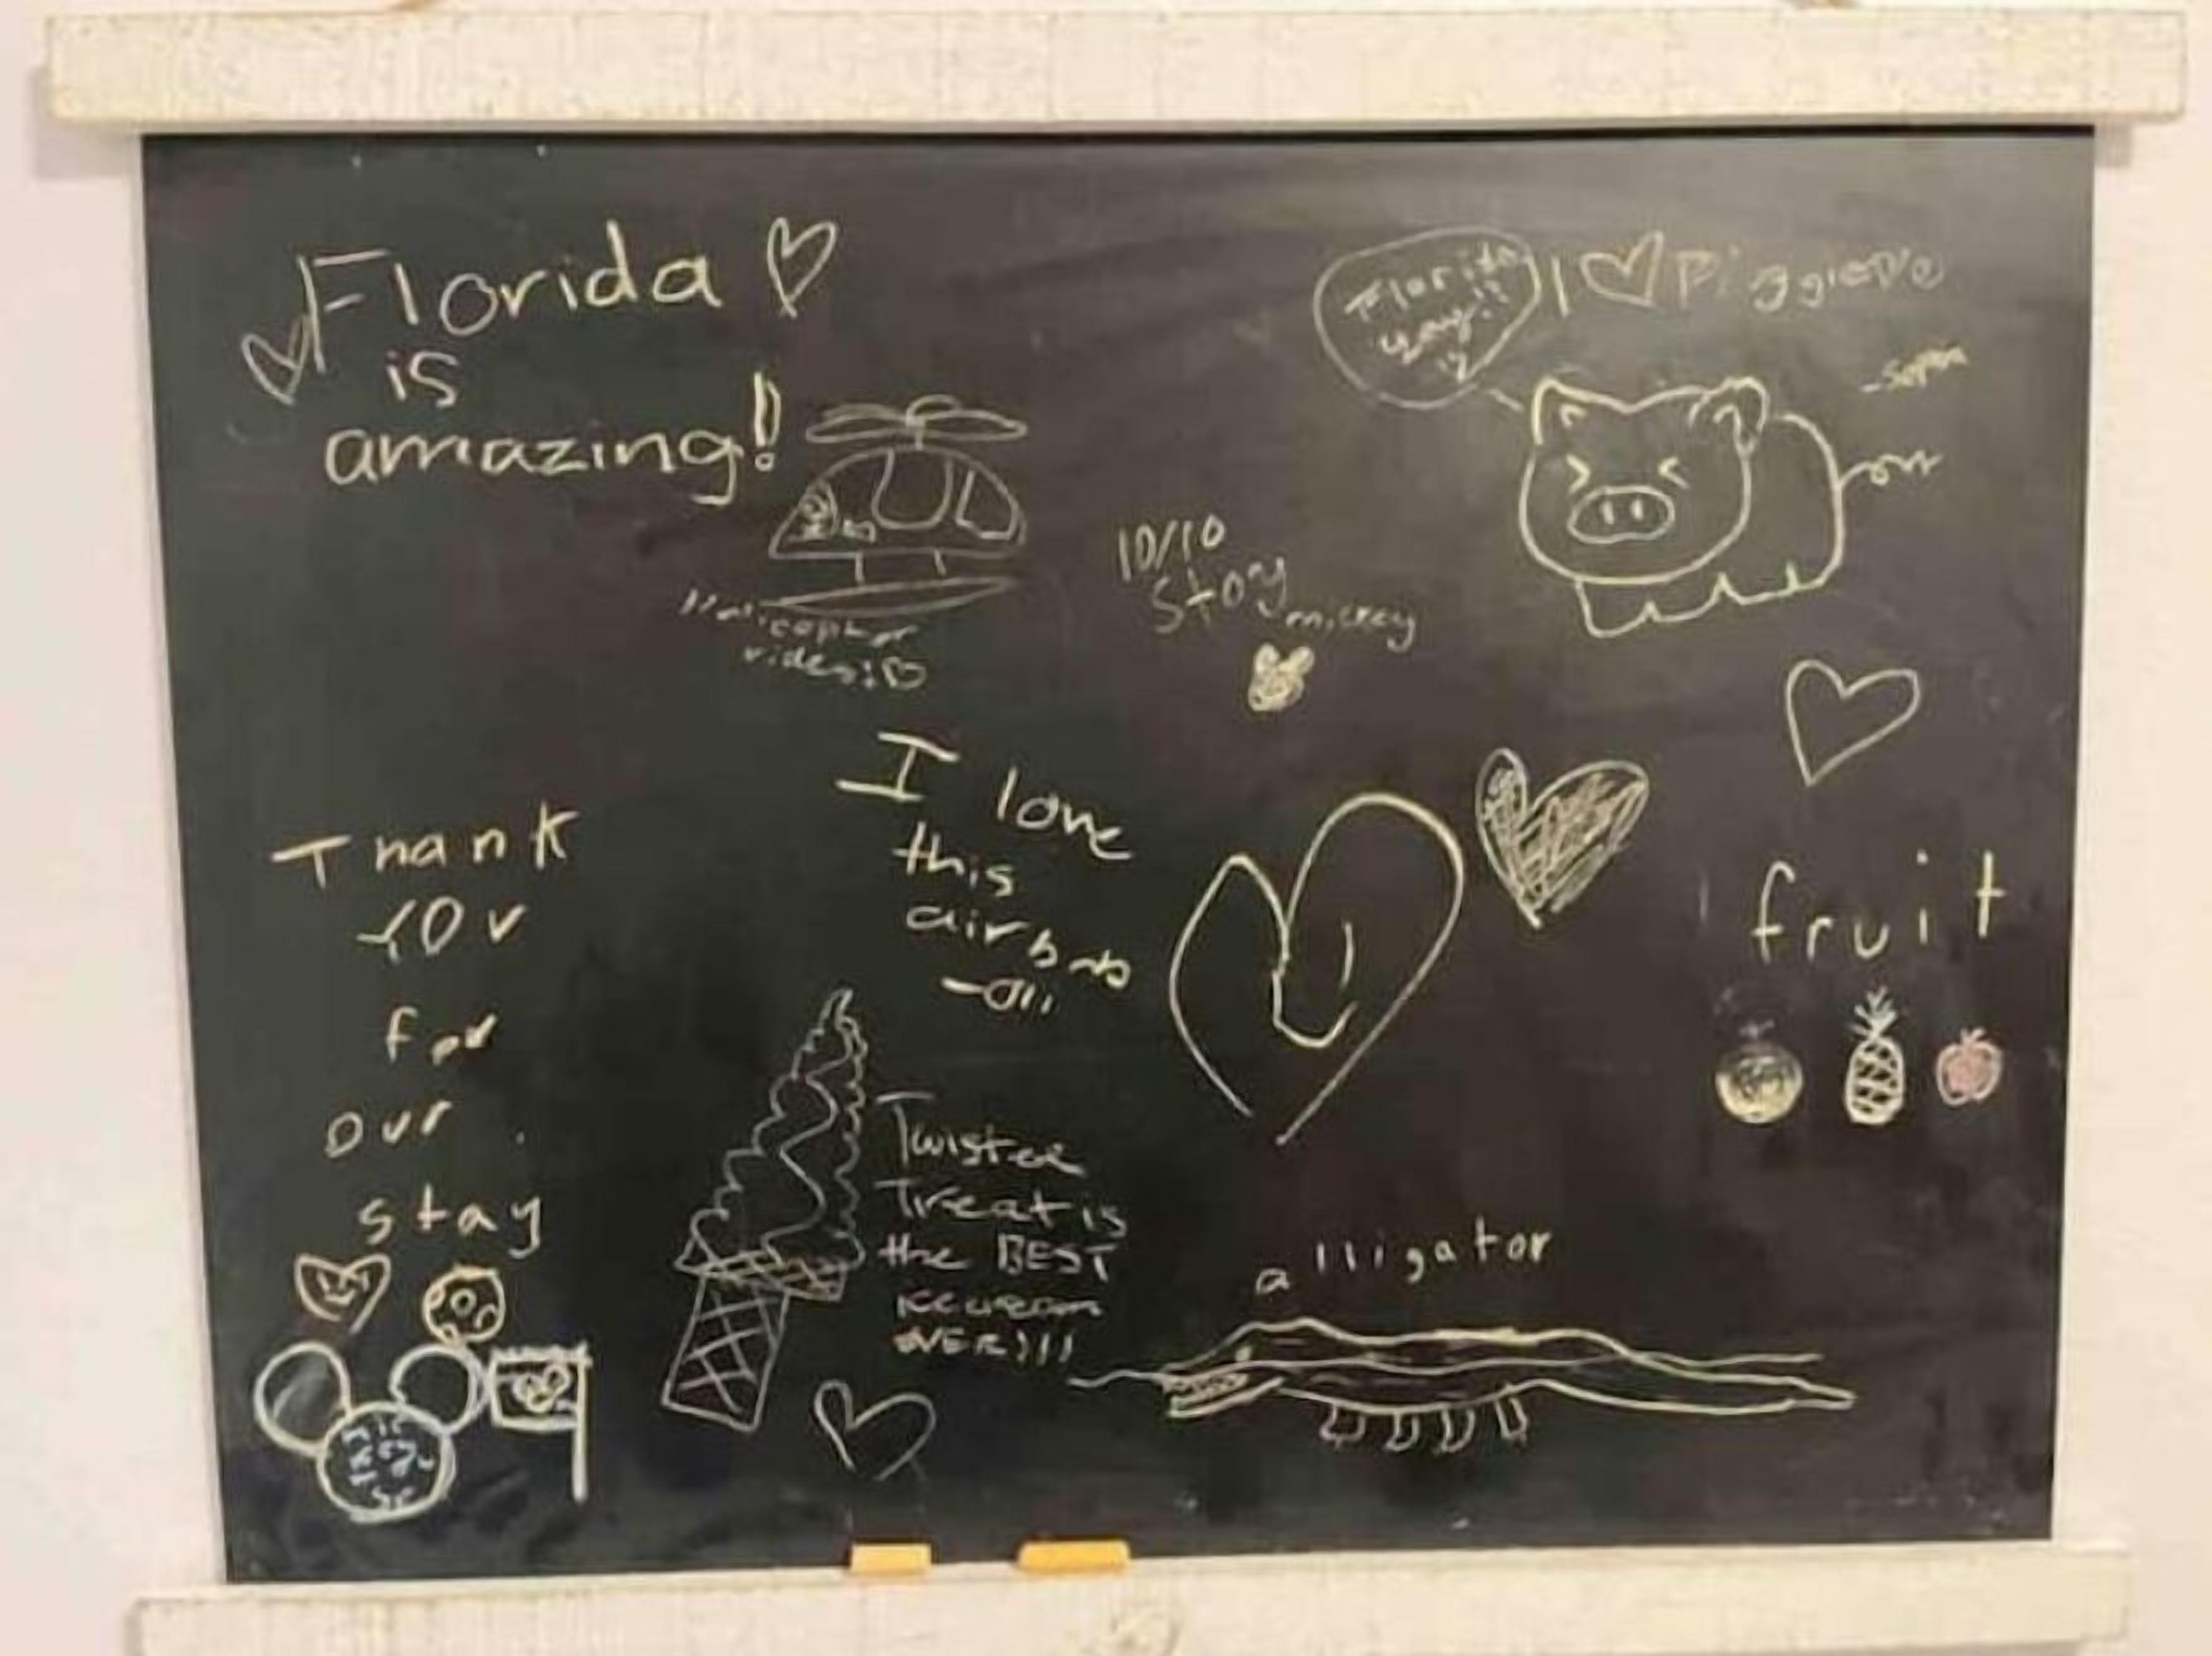 Florida
is
amazing!!
Florida
yay!!
I Piggie
-Sophia
Helicopter
rides!
10/10
Stay
mickey
I love
this
airbnb
-Olli
Thank
YOU
for
our
stay
fruit
Twistee
Treat is
the BEST
icecream
EVER!!!
alligator